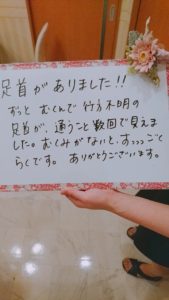 足首がありました!!
ずっと むくんで 行方不明の
足首が、通うこと数回で見えま
した。むくみがないと、すっっっごく
らくです。 ありがとうございます。